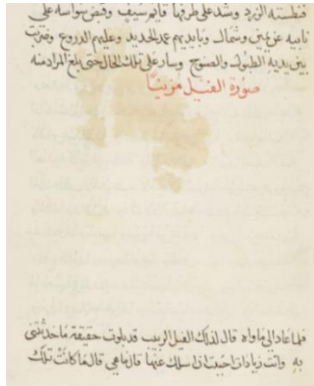 فطلسته الزرد وشد على طرفها فانه سيف وقبض سواسه على
نابيه عن يمين وشمال وبايديهم عمد الحديد وعليهم الدروع وضربت
بين يديه الطبول والصنوج وسار على تلك الحال حتى بلغ المراد منه
صورة الفيل مزينا
فلما عاد الى ماواه قال لذلك الفيل الريب قد بلوت حقيقة ما حدثتنى
به وانت زيادات احببت ان اسلك عنها قال ما هي قال ما كانت تلك